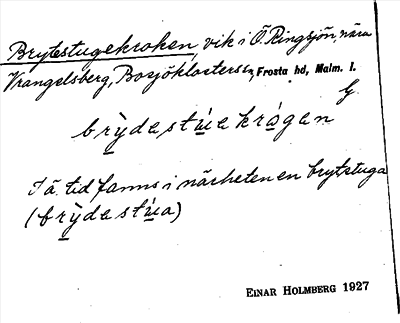 Brytestugekroken, vik i Ö. Ringsjön, nära
Vrangelsberg, Bosjöklosters sn, Frosta hd, Malm. l.
G.
brỳdastúakrågan
I ä. tid fanns i närheten en brytstuga
(brỳdastúa)
EINAR HOLMBERG 1927